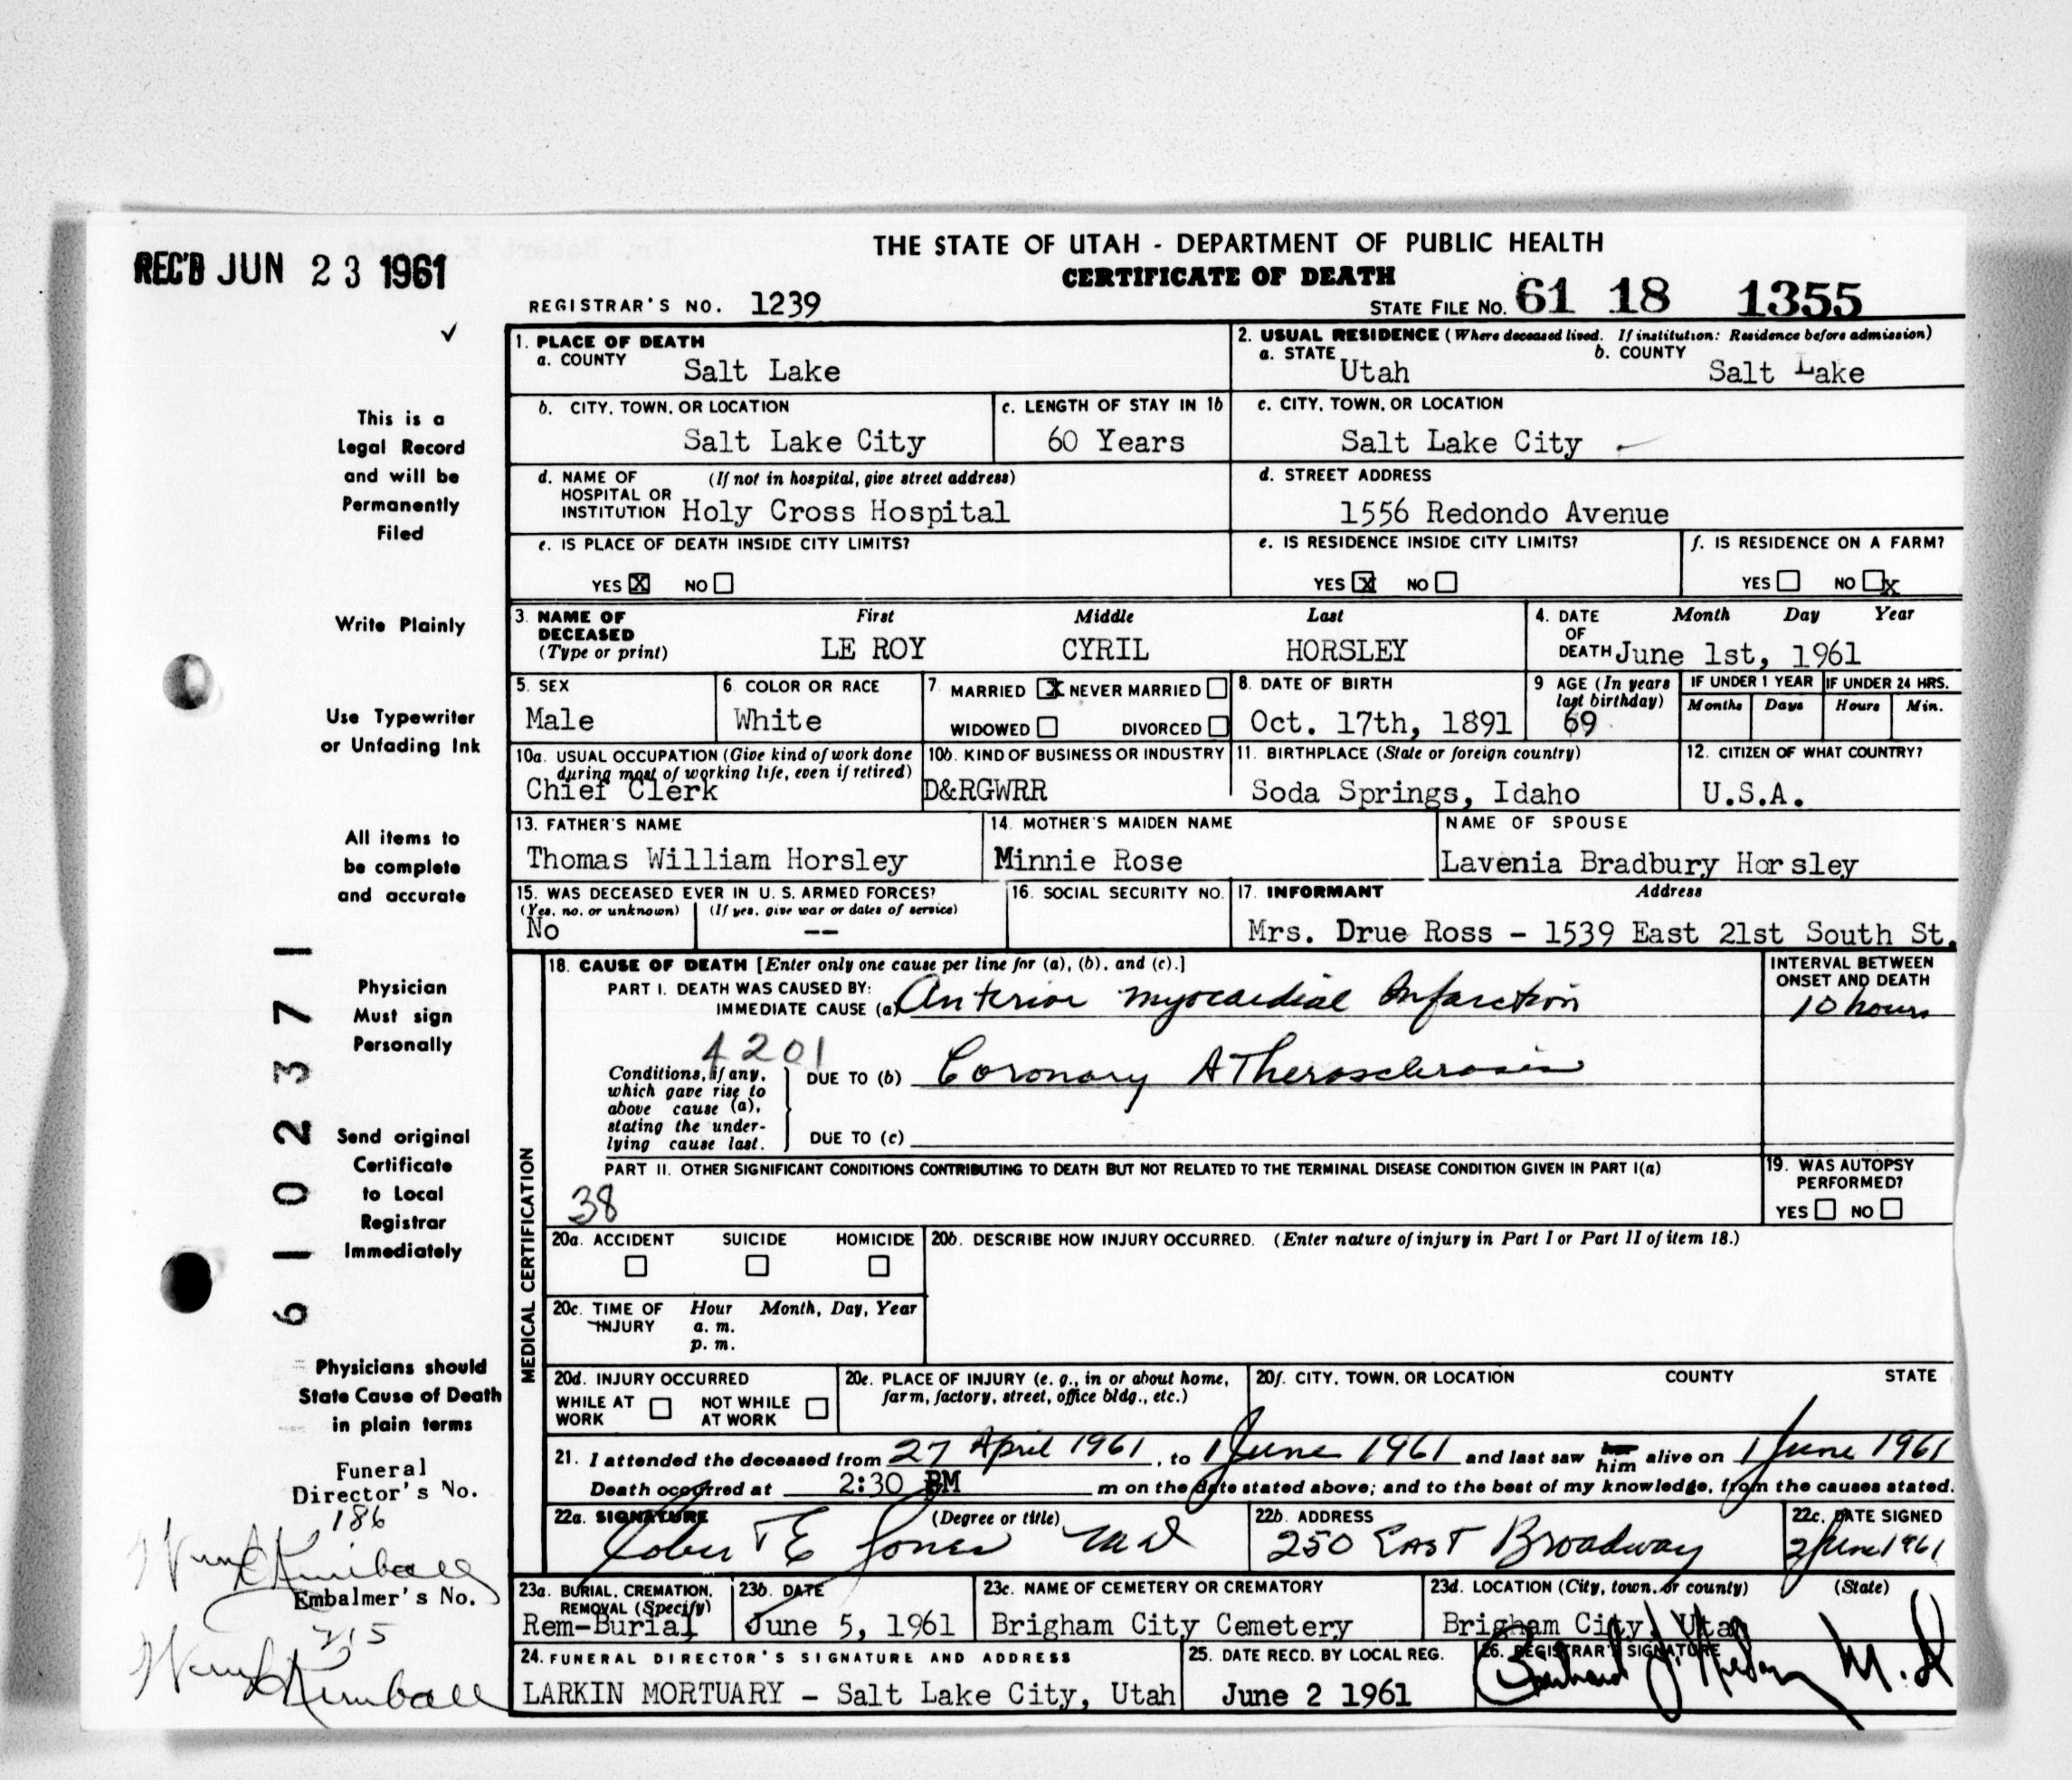 THE STATE OF UTAH - DEPARTMENT OF PUBLIC HEALTH
CERTIFICATE OF DEATH
REC'D JUN 23 1961
REGISTRAR'S NO. 1239
STATE FILE NO. 61 18 1355
This is a
Legal Record
and will be
Permanently
Filed
Write Plainly
Use Typewriter
or Unfading Ink
All items to
be complete
and accurate
Physician
Must sign
Personally
Send original
Certificate
to Local
Registrar
Immediately
Physicians should
State Cause of Death
in plain terms
Funeral
Director's No.
186
Kimball
Embalmer's No.
215
Kimball
6102371
1. PLACE OF DEATH
a. COUNTY Salt Lake
2. USUAL RESIDENCE (Where deceased lived. If institution: Residence before admission)
a. STATE Utah b. COUNTY Salt Lake
b. CITY, TOWN, OR LOCATION Salt Lake City
c. LENGTH OF STAY IN 1b 60 Years
c. CITY, TOWN, OR LOCATION Salt Lake City
d. NAME OF HOSPITAL OR INSTITUTION (If not in hospital, give street address) Holy Cross Hospital
d. STREET ADDRESS 1556 Redondo Avenue
e. IS PLACE OF DEATH INSIDE CITY LIMITS?
YES X NO
e. IS RESIDENCE INSIDE CITY LIMITS?
YES X NO
f. IS RESIDENCE ON A FARM?
YES NO X
3. NAME OF DECEASED (Type or print)
First Middle Last
LE ROY CYRIL HORSLEY
4. DATE OF DEATH Month Day Year
June 1st, 1961
5. SEX Male
6. COLOR OR RACE White
7. MARRIED X NEVER MARRIED
WIDOWED DIVORCED
8. DATE OF BIRTH Oct. 17th, 1891
9 AGE (In years last birthday) 69
IF UNDER 1 YEAR Months Days
IF UNDER 24 HRS. Hours Min.
10a. USUAL OCCUPATION (Give kind of work done during most of working life, even if retired) Chief Clerk
10b. KIND OF BUSINESS OR INDUSTRY D&RGWRR
11. BIRTHPLACE (State or foreign country) Soda Springs, Idaho
12. CITIZEN OF WHAT COUNTRY? U.S.A.
13. FATHER'S NAME Thomas William Horsley
14. MOTHER'S MAIDEN NAME Minnie Rose
NAME OF SPOUSE Lavenia Bradbury Horsley
15. WAS DECEASED EVER IN U. S. ARMED FORCES?
(Yes, no, or unknown) No
(If yes, give war or dates of service) --
16. SOCIAL SECURITY NO.
17. INFORMANT Address
Mrs. Drue Ross - 1539 East 21st South St.
MEDICAL CERTIFICATION
18. CAUSE OF DEATH [Enter only one cause per line for (a), (b), and (c).]
INTERVAL BETWEEN ONSET AND DEATH
PART I. DEATH WAS CAUSED BY:
IMMEDIATE CAUSE (a) Anterior myocardial Infarction
10 hours
4201
Conditions, if any, which gave rise to above cause (a), stating the underlying cause last.
DUE TO (b) Coronary Atherosclerosis
DUE TO (c)
PART II. OTHER SIGNIFICANT CONDITIONS CONTRIBUTING TO DEATH BUT NOT RELATED TO THE TERMINAL DISEASE CONDITION GIVEN IN PART I(a)
38
19. WAS AUTOPSY PERFORMED?
YES NO
20a. ACCIDENT SUICIDE HOMICIDE
20b. DESCRIBE HOW INJURY OCCURRED. (Enter nature of injury in Part I or Part II of item 18.)
20c. TIME OF INJURY Hour Month, Day, Year
a. m.
p. m.
20d. INJURY OCCURRED
WHILE AT WORK NOT WHILE AT WORK
20e. PLACE OF INJURY (e. g., in or about home, farm, factory, street, office bldg., etc.)
20f. CITY, TOWN, OR LOCATION COUNTY STATE
21. I attended the deceased from 27 April 1961, to 1 June 1961 and last saw her him alive on 1 June 1961
Death occurred at 2:30 PM m on the date stated above; and to the best of my knowledge, from the causes stated.
22a. SIGNATURE (Degree or title)
Robert E Jones MD
22b. ADDRESS 250 East Broadway
22c. DATE SIGNED 2 June 1961
23a. BURIAL, CREMATION, REMOVAL (Specify) Rem-Burial
23b. DATE June 5, 1961
23c. NAME OF CEMETERY OR CREMATORY Brigham City Cemetery
23d. LOCATION (City, town, or county) (State)
Brigham City, Utah
24. FUNERAL DIRECTOR'S SIGNATURE AND ADDRESS
LARKIN MORTUARY - Salt Lake City, Utah
25. DATE RECD. BY LOCAL REG. June 2 1961
26. REGISTRAR'S SIGNATURE
M.D